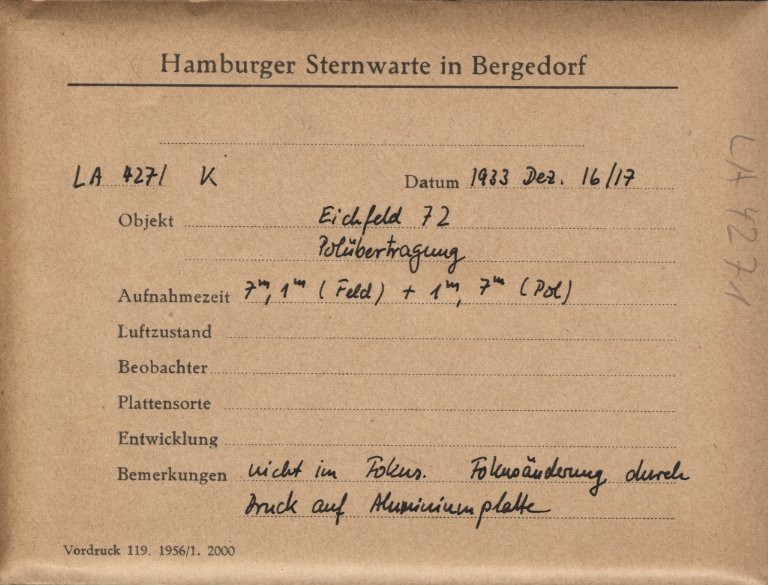 Hamburger Sternwarte in Bergedorf
LA 4271 K Datum 1933 Dez. 16/17
Objekt Eichfeld 72
Polübertragung
Aufnahmezeit 7ᵐ, 1ᵐ (Feld) + 1ᵐ, 7ᵐ (Pol)
Luftzustand
Beobachter
Plattensorte
Entwicklung
Bemerkungen nicht im Fokus. Fokusänderung durch
Druck auf Aluminiumplatte
Vordruck 119. 1956/1. 2000
LA 4271